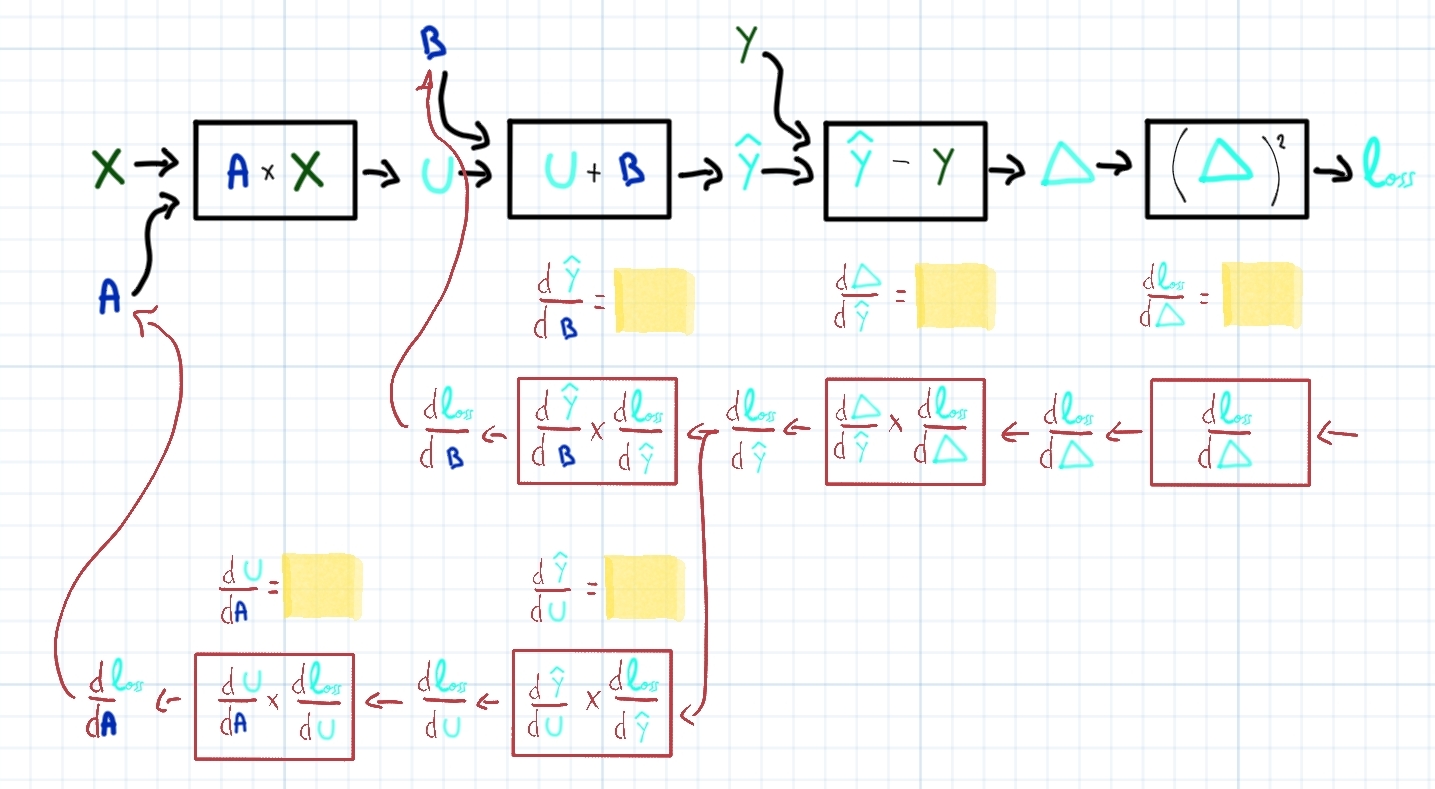 B Y
X → A × X → U → U + B → Ŷ → Ŷ - Y → Δ → (Δ)² → loss
A
dŶ/dB = dΔ/dŶ = dloss/dΔ =
dloss/dB ← dŶ/dB × dloss/dŶ ← dloss/dŶ ← dΔ/dŶ × dloss/dΔ ← dloss/dΔ ← dloss/dΔ ←
dU/dA = dŶ/dU =
dloss/dA ← dU/dA × dloss/dU ← dloss/dU ← dŶ/dU × dloss/dŶ